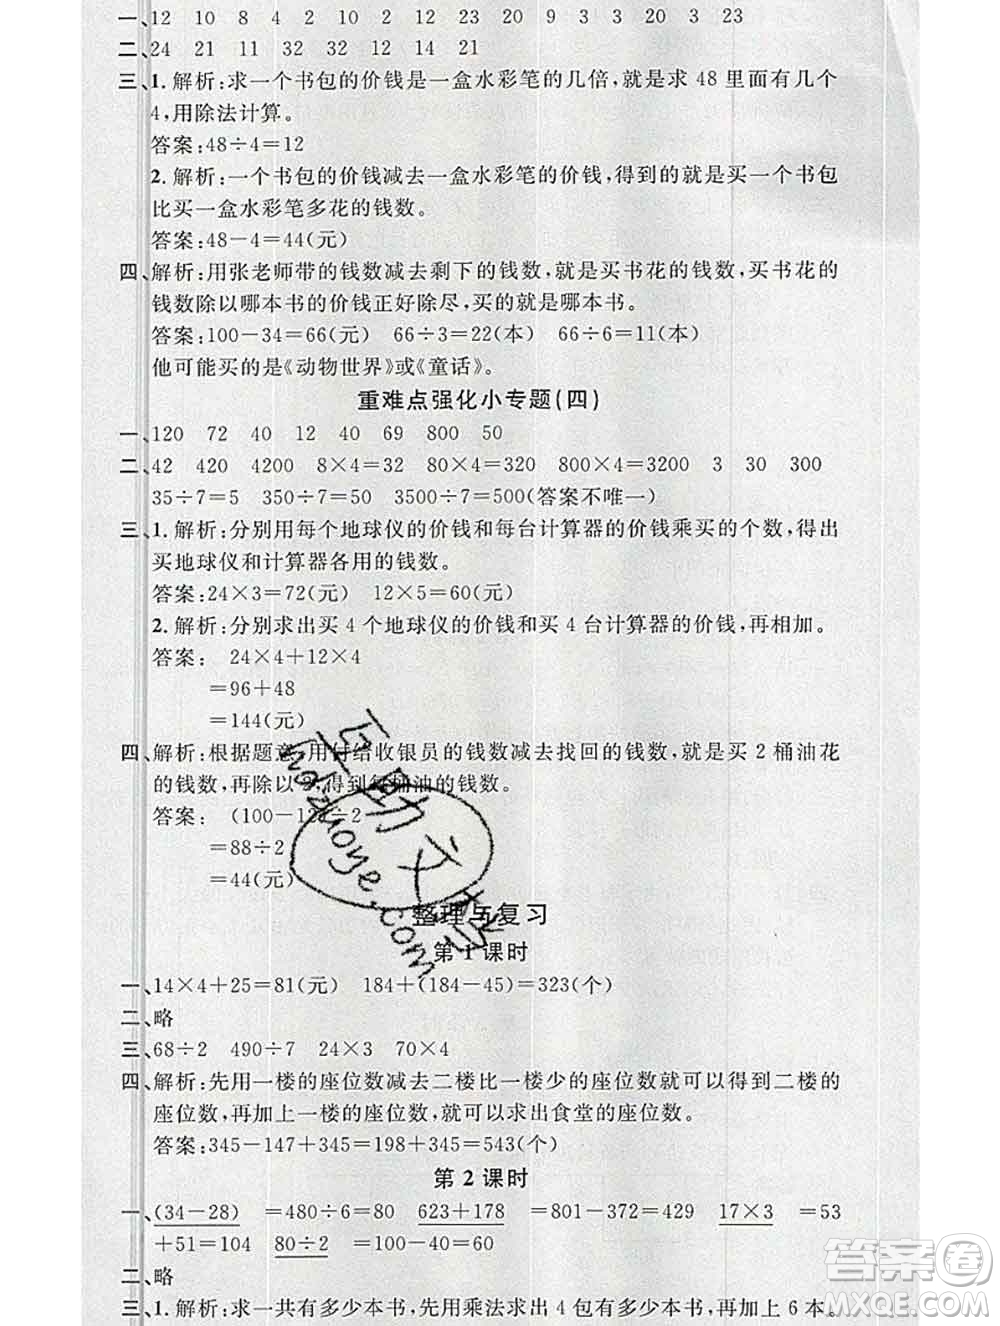 一、12 10 8 4 2 0 3 20 2 3 23
二、24 21 11 32 32 12 14 21
三、1. 解析:求一个书包的价钱是一盒水彩笔的几倍,就是求 48 里面有几个
4,用除法计算。
答案:48÷4=12
2. 解析:一个书包的价钱减去一盒水彩笔的价钱,得到的就是买一个书包
比买一盒水彩笔多花的钱数。
答案:48-4=44(元)
四、解析:用张老师带的钱数减去剩下的钱数,就是买书花的钱数,买书花的
钱数除以哪本书的价钱正好除尽,买的就是哪本书。
答案:100-34=66(元) 66÷3=22(本) 66÷6=11(本)
他可能买的是《动物世界》或《童话》。
重难点强化小专题(四)
一、120 72 40 12 40 69 800 50
二、42 420 4200 8×4=32 80×4=320 800×4=3200 3 30 300
35÷7=5 350÷7=50 3500÷7=500(答案不唯一)
三、1. 解析:分别用每个地球仪的价钱和每台计算器的价钱乘买的个数,得出
买地球仪和计算器各用的钱数。
答案:24×3=72(元) 12×5=60(元)
2. 解析:分别求出买 4 个地球仪的价钱和买 4 台计算器的价钱,再相加。
答案: 24×4+12×4
=96+48
=144(元)
四、解析:根据题意,用付给收银员的钱数减去找回的钱数,就是买 2 桶油花
的钱数,再除以 2,得到每桶油的钱数。
答案: (100-12)÷2
=88÷2
=44(元)
整理与复习
第 1 课时
一、14×4+25=81(元) 184+(184-45)=323(个)
二、略
三、68÷2 490÷7 24×3 70×4
四、解析:先用一楼的座位数减去二楼比一楼少的座位数就可以得到二楼的
座位数,再加上一楼的座位数,就可以求出食堂的座位数。
答案:345-147+345=198+345=543(个)
第 2 课时
一、(34-28) =480÷6=80 623+178 =801-372=429 17×3 =53
+51=104 80÷2 =100-40=60
二、略
三、1. 解析:求一共有多少本书,先用乘法求出 4 包有多少本书,再加上 6 本。
互助文库
hdzuoye.com
答案圈
MXQE.COM